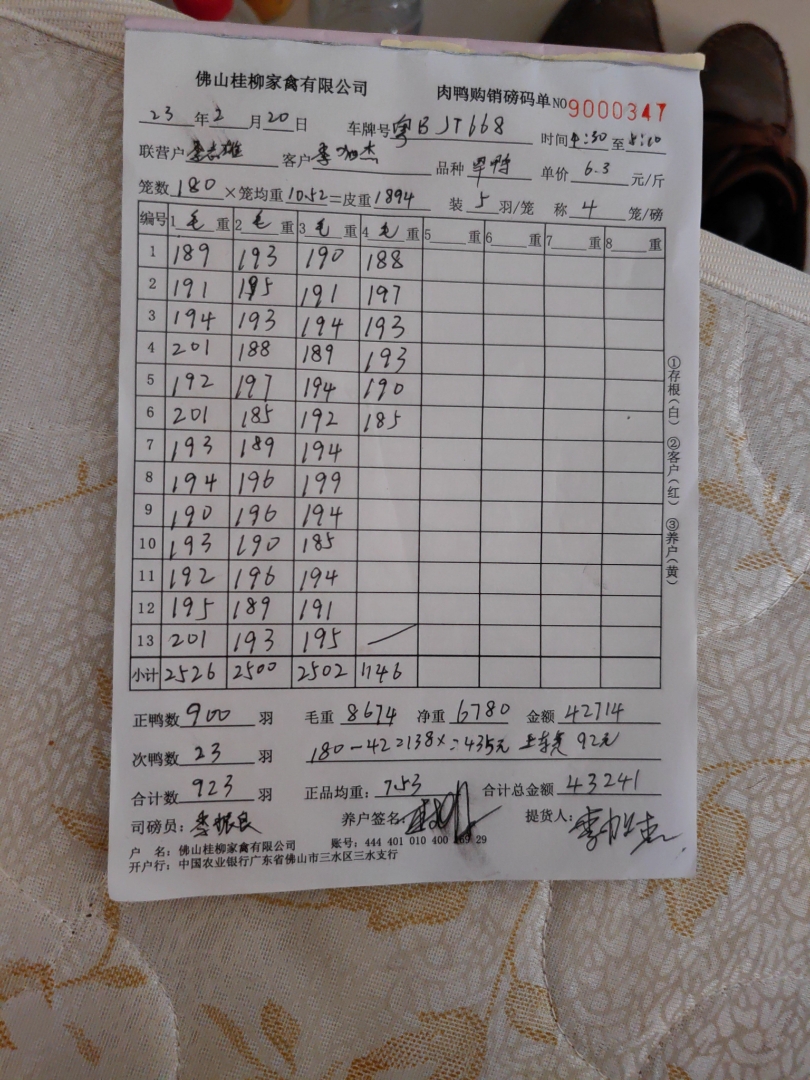 佛山桂柳家禽有限公司 肉鸭购销磅码单 NO9000347
23年2月20日 车牌号粤BJT668 时间4:30至8:10
联营户 客户 品种 单价6.3元/斤
笼数180×笼均重10.52=皮重1894 装5羽/笼 称4笼/磅
编号 1毛重 2毛重 3毛重 4毛重 5重 6重 7重 8重
1 189 193 190 188
2 191 195 191 197
3 194 193 194 193
4 201 188 189 193
5 192 197 194 190
6 201 185 192 185
7 193 189 194
8 194 196 199
9 190 196 194
10 193 190 185
11 192 196 194
12 195 189 191
13 201 193 195
小计 2526 2500 2502 1146
正鸭数900羽 毛重8674 净重6780 金额42714
次鸭数23羽 180-42=138×=435元 92元
合计数923羽 正品均重:7.53 合计总金额43241
司磅员: 养户签名: 提货人:
户 名:佛山桂柳家禽有限公司 账号:444 401 010 400 29
开户行:中国农业银行广东省佛山市三水区三水支行
①存根(白) ②客户(红) ③养户(黄)